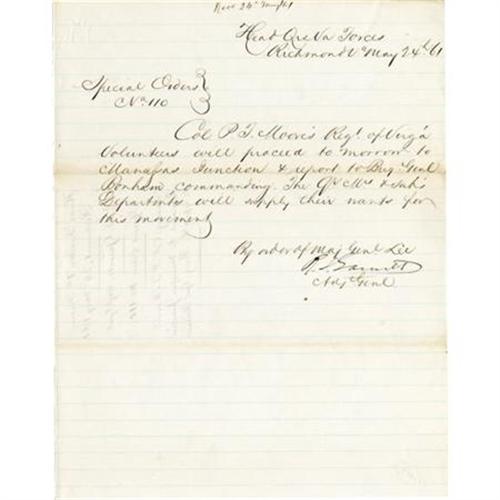 Recd 24th May/61
Head Qrs Va Forces
Richmond Va May 24th 61
Special Orders
No 110
Col P. T. Moore's Regt. of Virg'a
Volunteers will proceed to morrow to
Manassas Junction & report to Brig. Genl
Bonham commanding. The Qr Mrs & Subs
Departments will supply their wants for
this movement
By order of Maj Genl. Lee
R. S. Garnett
Adjt Genl